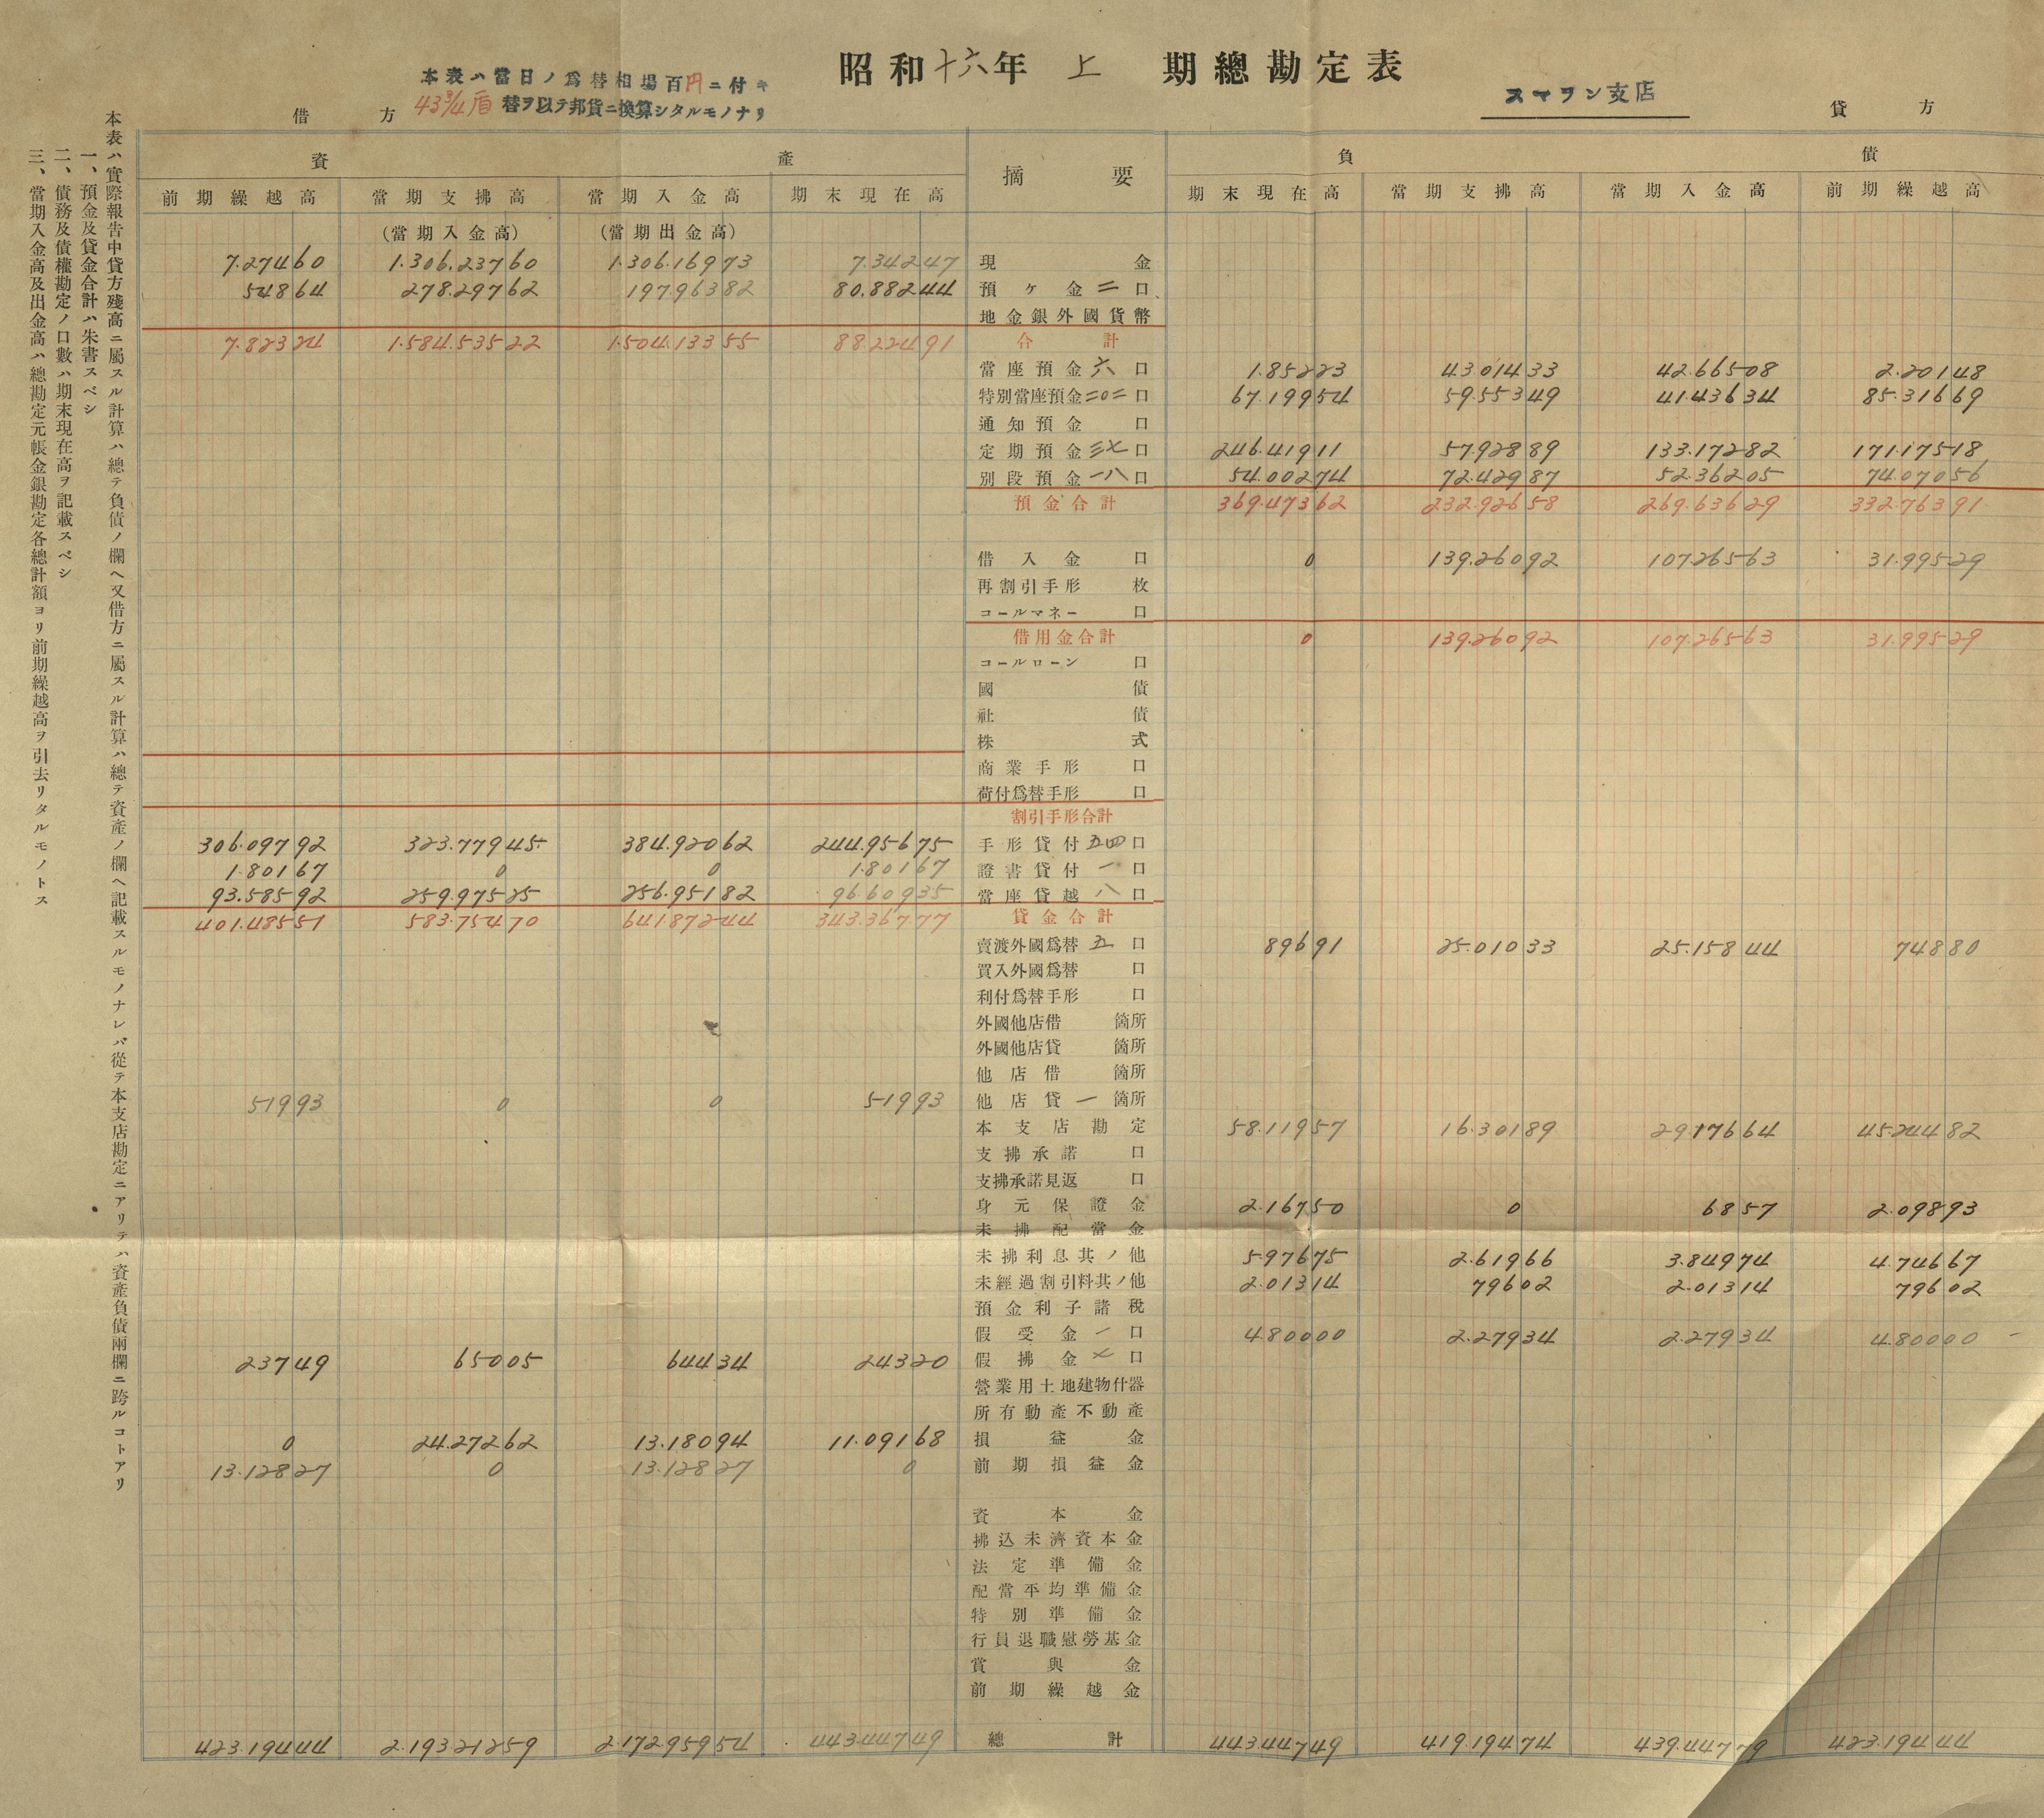 昭和十六年 上 期總勘定表
本表ハ當日ノ爲替相場百円ニ付キ
43 3/4 盾 替ヲ以テ邦貨ニ換算シタルモノナリ
スマラン支店
借 方 貸 方
資 產 摘 要 負 債
前期繰越高 當期支拂高 當期入金高 期末現在高 期末現在高 當期支拂高 當期入金高 前期繰越高
(當期入金高) (當期出金高)
7.274 60 1.306.237 60 1.306.169 73 7.342 47 現金
548 64 278.297 62 197.963 82 80.882 44 預ケ金 二 口
地金銀外國貨幣
7.823 24 1.584.535 22 1.504.133 55 88.224 91 合計
當座預金 六 口 1.852 23 43.014 33 42.665 08 2.201 48
特別當座預金 二〇二 口 67.199 54 59.553 49 41.436 34 85.316 69
通知預金 口
定期預金 三七 口 246.419 11 57.928 89 133.172 82 171.175 18
別段預金 一八 口 54.002 74 72.429 87 52.362 05 74.070 56
預金合計 369.473 62 232.926 58 269.636 29 332.763 91
借入金 口 0 139.260 92 107.265 63 31.995 29
再割引手形 枚
コールマネー 口
借用金合計 0 139.260 92 107.265 63 31.995 29
コールローン 口
國債
社債
株式
商業手形 口
荷付爲替手形 口
割引手形合計
306.097 92 323.779 45 384.920 62 244.956 75 手形貸付 五四 口
1.801 67 0 0 1.801 67 證書貸付 一 口
93.585 92 259.975 25 256.951 82 96.609 35 當座貸越 八 口
401.485 51 583.754 70 641.872 44 343.367 77 貸金合計
賣渡外國爲替 五 口 896 91 25.010 33 25.158 44 748 80
買入外國爲替 口
利付爲替手形 口
外國他店借 箇所
外國他店貸 箇所
他店借 箇所
519 93 0 0 519 93 他店貸 一 箇所
本支店勘定 58.119 57 16.301 89 29.176 64 45.244 82
支拂承諾 口
支拂承諾見返 口
身元保證金 2.167 50 0 68 57 2.098 93
未拂配當金
未拂利息其ノ他 5.976 75 2.619 66 3.849 74 4.746 67
未經過割引料其ノ他 2.013 14 796 02 2.013 14 796 02
預金利子諸税
假受金 一 口 4.800 00 2.279 34 2.279 34 4.800 00
237 49 650 05 644 34 243 20 假拂金 七 口
營業用土地建物什器
所有動產不動產
0 24.272 62 13.180 94 11.091 68 損益金
13.128 27 0 13.128 27 0 前期損益金
資本金
拂込未濟資本金
法定準備金
配當平均準備金
特別準備金
行員退職慰勞基金
賞與金
前期繰越金
423.194 44 2.193.212 59 2.172.959 54 443.447 49 總計 443.447 49 419.194 74 439.447 79 423.194 44
本表ハ實際報告中貸方殘高ニ屬スル計算ハ總テ負債ノ欄ヘ又借方ニ屬スル計算ハ總テ資產ノ欄ヘ記載スルモノナレバ從テ本支店勘定ニアリテハ資產負債兩欄ニ跨ルコトアリ
一、預金及貸金合計ハ朱書スベシ
二、債務及債權勘定ノ口數ハ期末現在高ヲ記載スベシ
三、當期入金高及出金高ハ總勘定元帳金銀勘定各總計額ヨリ前期繰越高ヲ引去リタルモノトス